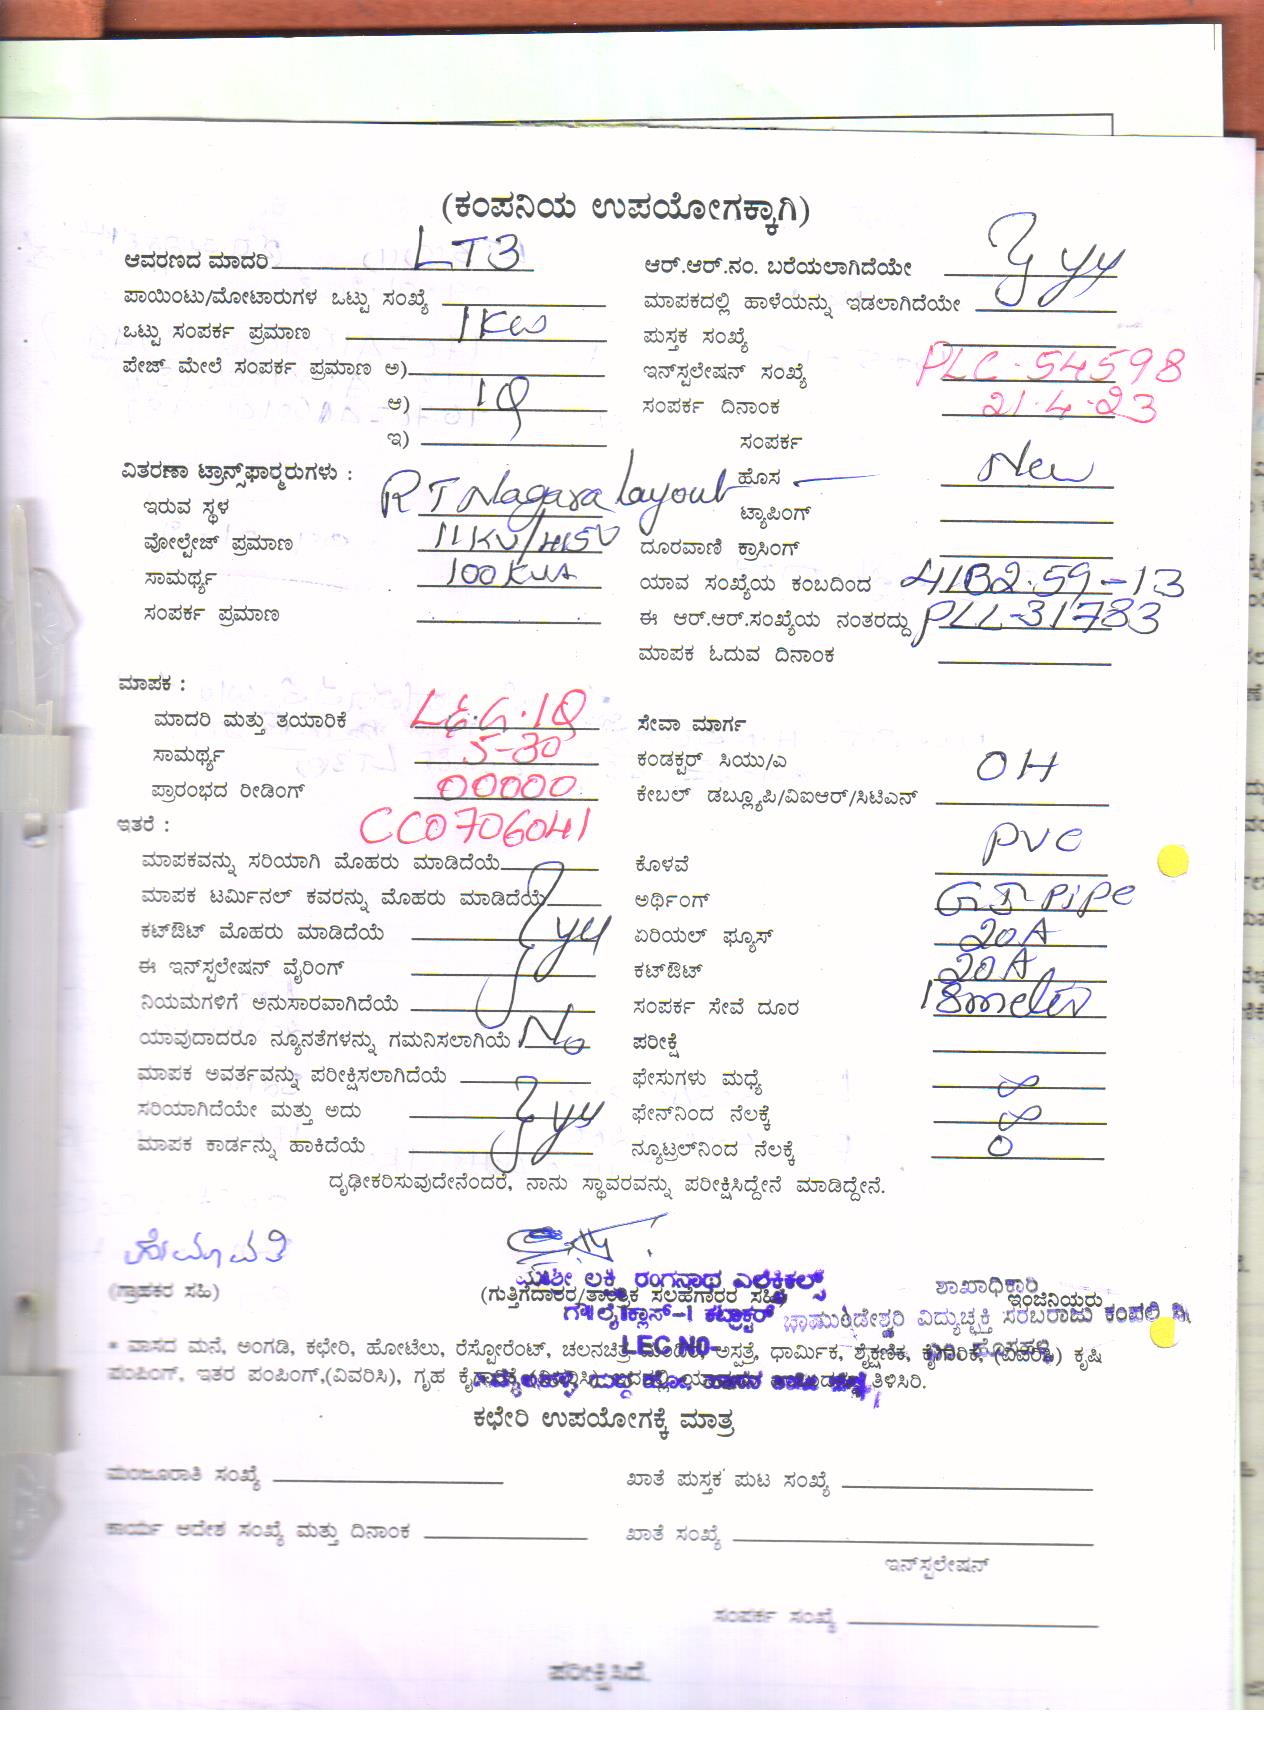 (ಕಂಪನಿಯ ಉಪಯೋಗಕ್ಕಾಗಿ)
ಆವರಣದ ಮಾದರಿ LT3
ಪಾಯಿಂಟು/ಮೋಟಾರುಗಳ ಒಟ್ಟು ಸಂಖ್ಯೆ
ಒಟ್ಟು ಸಂಪರ್ಕ ಪ್ರಮಾಣ 1Kw
ಪೇಜ್ ಮೇಲೆ ಸಂಪರ್ಕ ಪ್ರಮಾಣ ಅ)
ಆ) 1Q
ಇ)
ವಿತರಣಾ ಟ್ರಾನ್ಸ್‌ಫಾರ್‍ಮರುಗಳು :
ಇರುವ ಸ್ಥಳ RT Nagara layout
ವೋಲ್ಟೇಜ್ ಪ್ರಮಾಣ 11KV/415V
ಸಾಮರ್ಥ್ಯ 100KVA
ಸಂಪರ್ಕ ಪ್ರಮಾಣ
ಆರ್.ಆರ್.ನಂ. ಬರೆಯಲಾಗಿದೆಯೇ
ಮಾಪಕದಲ್ಲಿ ಹಾಳೆಯನ್ನು ಇಡಲಾಗಿದೆಯೇ } yy
ಪುಸ್ತಕ ಸಂಖ್ಯೆ
ಇನ್‌ಸ್ಪಲೇಷನ್ ಸಂಖ್ಯೆ PLC-54598
ಸಂಪರ್ಕ ದಿನಾಂಕ 21.4.23
ಸಂಪರ್ಕ
ಹೊಸ New
ಟ್ಯಾಪಿಂಗ್
ದೂರವಾಣಿ ಕ್ರಾಸಿಂಗ್
ಯಾವ ಸಂಖ್ಯೆಯ ಕಂಬದಿಂದ 41B2.59-13
ಈ ಆರ್.ಆರ್.ಸಂಖ್ಯೆಯ ನಂತರದ್ದು PLL-31783
ಮಾಪಕ ಓದುವ ದಿನಾಂಕ
ಮಾಪಕ :
ಮಾದರಿ ಮತ್ತು ತಯಾರಿಕೆ L&G.1Q
ಸಾಮರ್ಥ್ಯ 5-30
ಪ್ರಾರಂಭದ ರೀಡಿಂಗ್ 00000
ಇತರೆ : CC0706041
ಮಾಪಕವನ್ನು ಸರಿಯಾಗಿ ಮೊಹರು ಮಾಡಿದೆಯೆ
ಮಾಪಕ ಟರ್ಮಿನಲ್ ಕವರನ್ನು ಮೊಹರು ಮಾಡಿದೆಯೆ
ಕಟ್‌ಔಟ್ ಮೊಹರು ಮಾಡಿದೆಯೆ } yy
ಈ ಇನ್‌ಸ್ಪಲೇಷನ್ ವೈರಿಂಗ್
ನಿಯಮಗಳಿಗೆ ಅನುಸಾರವಾಗಿದೆಯೆ
ಯಾವುದಾದರೂ ನ್ಯೂನತೆಗಳನ್ನು ಗಮನಿಸಲಾಗಿಯೆ No
ಮಾಪಕ ಅವರ್ತವನ್ನು ಪರೀಕ್ಷಿಸಲಾಗಿದೆಯೆ
ಸರಿಯಾಗಿದೆಯೇ ಮತ್ತು ಅದು } yy
ಮಾಪಕ ಕಾರ್ಡನ್ನು ಹಾಕಿದೆಯೆ
ಸೇವಾ ಮಾರ್ಗ
ಕಂಡಕ್ಟರ್ ಸಿಯು/ಎ OH
ಕೇಬಲ್ ಡಬ್ಲ್ಯೂಪಿ/ವಿಐಆರ್/ಸಿಟಿಎನ್
ಕೊಳವೆ PVC
ಅರ್ಥಿಂಗ್ GI-PiPe
ಏರಿಯಲ್ ಫ್ಯೂಸ್ 20A
ಕಟ್‌ಔಟ್ 20A
ಸಂಪರ್ಕ ಸೇವೆ ದೂರ 18meter
ಪರೀಕ್ಷೆ
ಫೇಸುಗಳು ಮಧ್ಯೆ ∞
ಫೇನ್‌ನಿಂದ ನೆಲಕ್ಕೆ ∞
ನ್ಯೂಟ್ರಲ್‌ನಿಂದ ನೆಲಕ್ಕೆ 0
ದೃಢೀಕರಿಸುವುದೇನೆಂದರೆ, ನಾನು ಸ್ಥಾವರವನ್ನು ಪರೀಕ್ಷಿಸಿದ್ದೇನೆ ಮಾಡಿದ್ದೇನೆ.
ಹೇಮಾವತಿ
(ಗ್ರಾಹಕರ ಸಹಿ)
ಶ್ರೀ ಲಕ್ಷ್ಮಿ ರಂಗನಾಥ ಎಲೆಕ್ಟ್ರಿಕಲ್ಸ್
(ಗುತ್ತಿಗೆದಾರರ/ತಾಂತ್ರಿಕ ಸಲಹೆಗಾರರ ಸಹಿ)
ಕ್ಲಾಸ್-1
LEC NO-
ಶಾಖಾಧಿಕಾರಿ
ಇಂಜಿನಿಯರು
ಚಾಮುಂಡೇಶ್ವರಿ ವಿದ್ಯುಚ್ಛಕ್ತಿ ಸರಬರಾಜು ಕಂಪನಿ ನಿ
* ವಾಸದ ಮನೆ, ಅಂಗಡಿ, ಕಛೇರಿ, ಹೋಟೆಲು, ರೆಸ್ಟೋರೆಂಟ್, ಚಲನಚಿತ್ರ ಮಂದಿರ, ಅಸ್ಪತ್ರೆ, ಧಾರ್ಮಿಕ, ಶೈಕ್ಷಣಿಕ, ಕೈಗಾರಿಕೆ, (ವಿವರಿಸಿ) ಕೃಷಿ
ಪಂಪಿಂಗ್, ಇತರ ಪಂಪಿಂಗ್,(ವಿವರಿಸಿ), ಗೃಹ ತಿಳಿಸಿರಿ.
ಕಛೇರಿ ಉಪಯೋಗಕ್ಕೆ ಮಾತ್ರ
ಮಂಜೂರಾತಿ ಸಂಖ್ಯೆ
ಖಾತೆ ಪುಸ್ತಕ ಪುಟ ಸಂಖ್ಯೆ
ಕಾರ್ಯ ಆದೇಶ ಸಂಖ್ಯೆ ಮತ್ತು ದಿನಾಂಕ
ಖಾತೆ ಸಂಖ್ಯೆ
ಇನ್‌ಸ್ಪಲೇಷನ್
ಸಂಪರ್ಕ ಸಂಖ್ಯೆ
ಪರೀಕ್ಷಿಸಿದೆ.